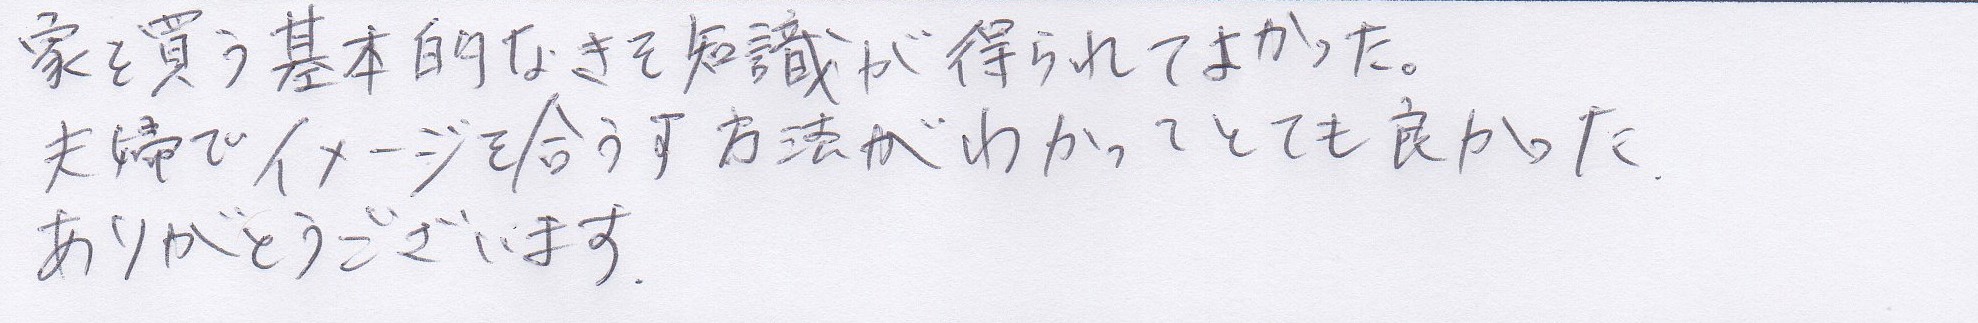 家を買う基本的なきそ知識が得られてよかった。
夫婦でイメージを合うす方法がわかってとても良かった.
ありがとうございます.